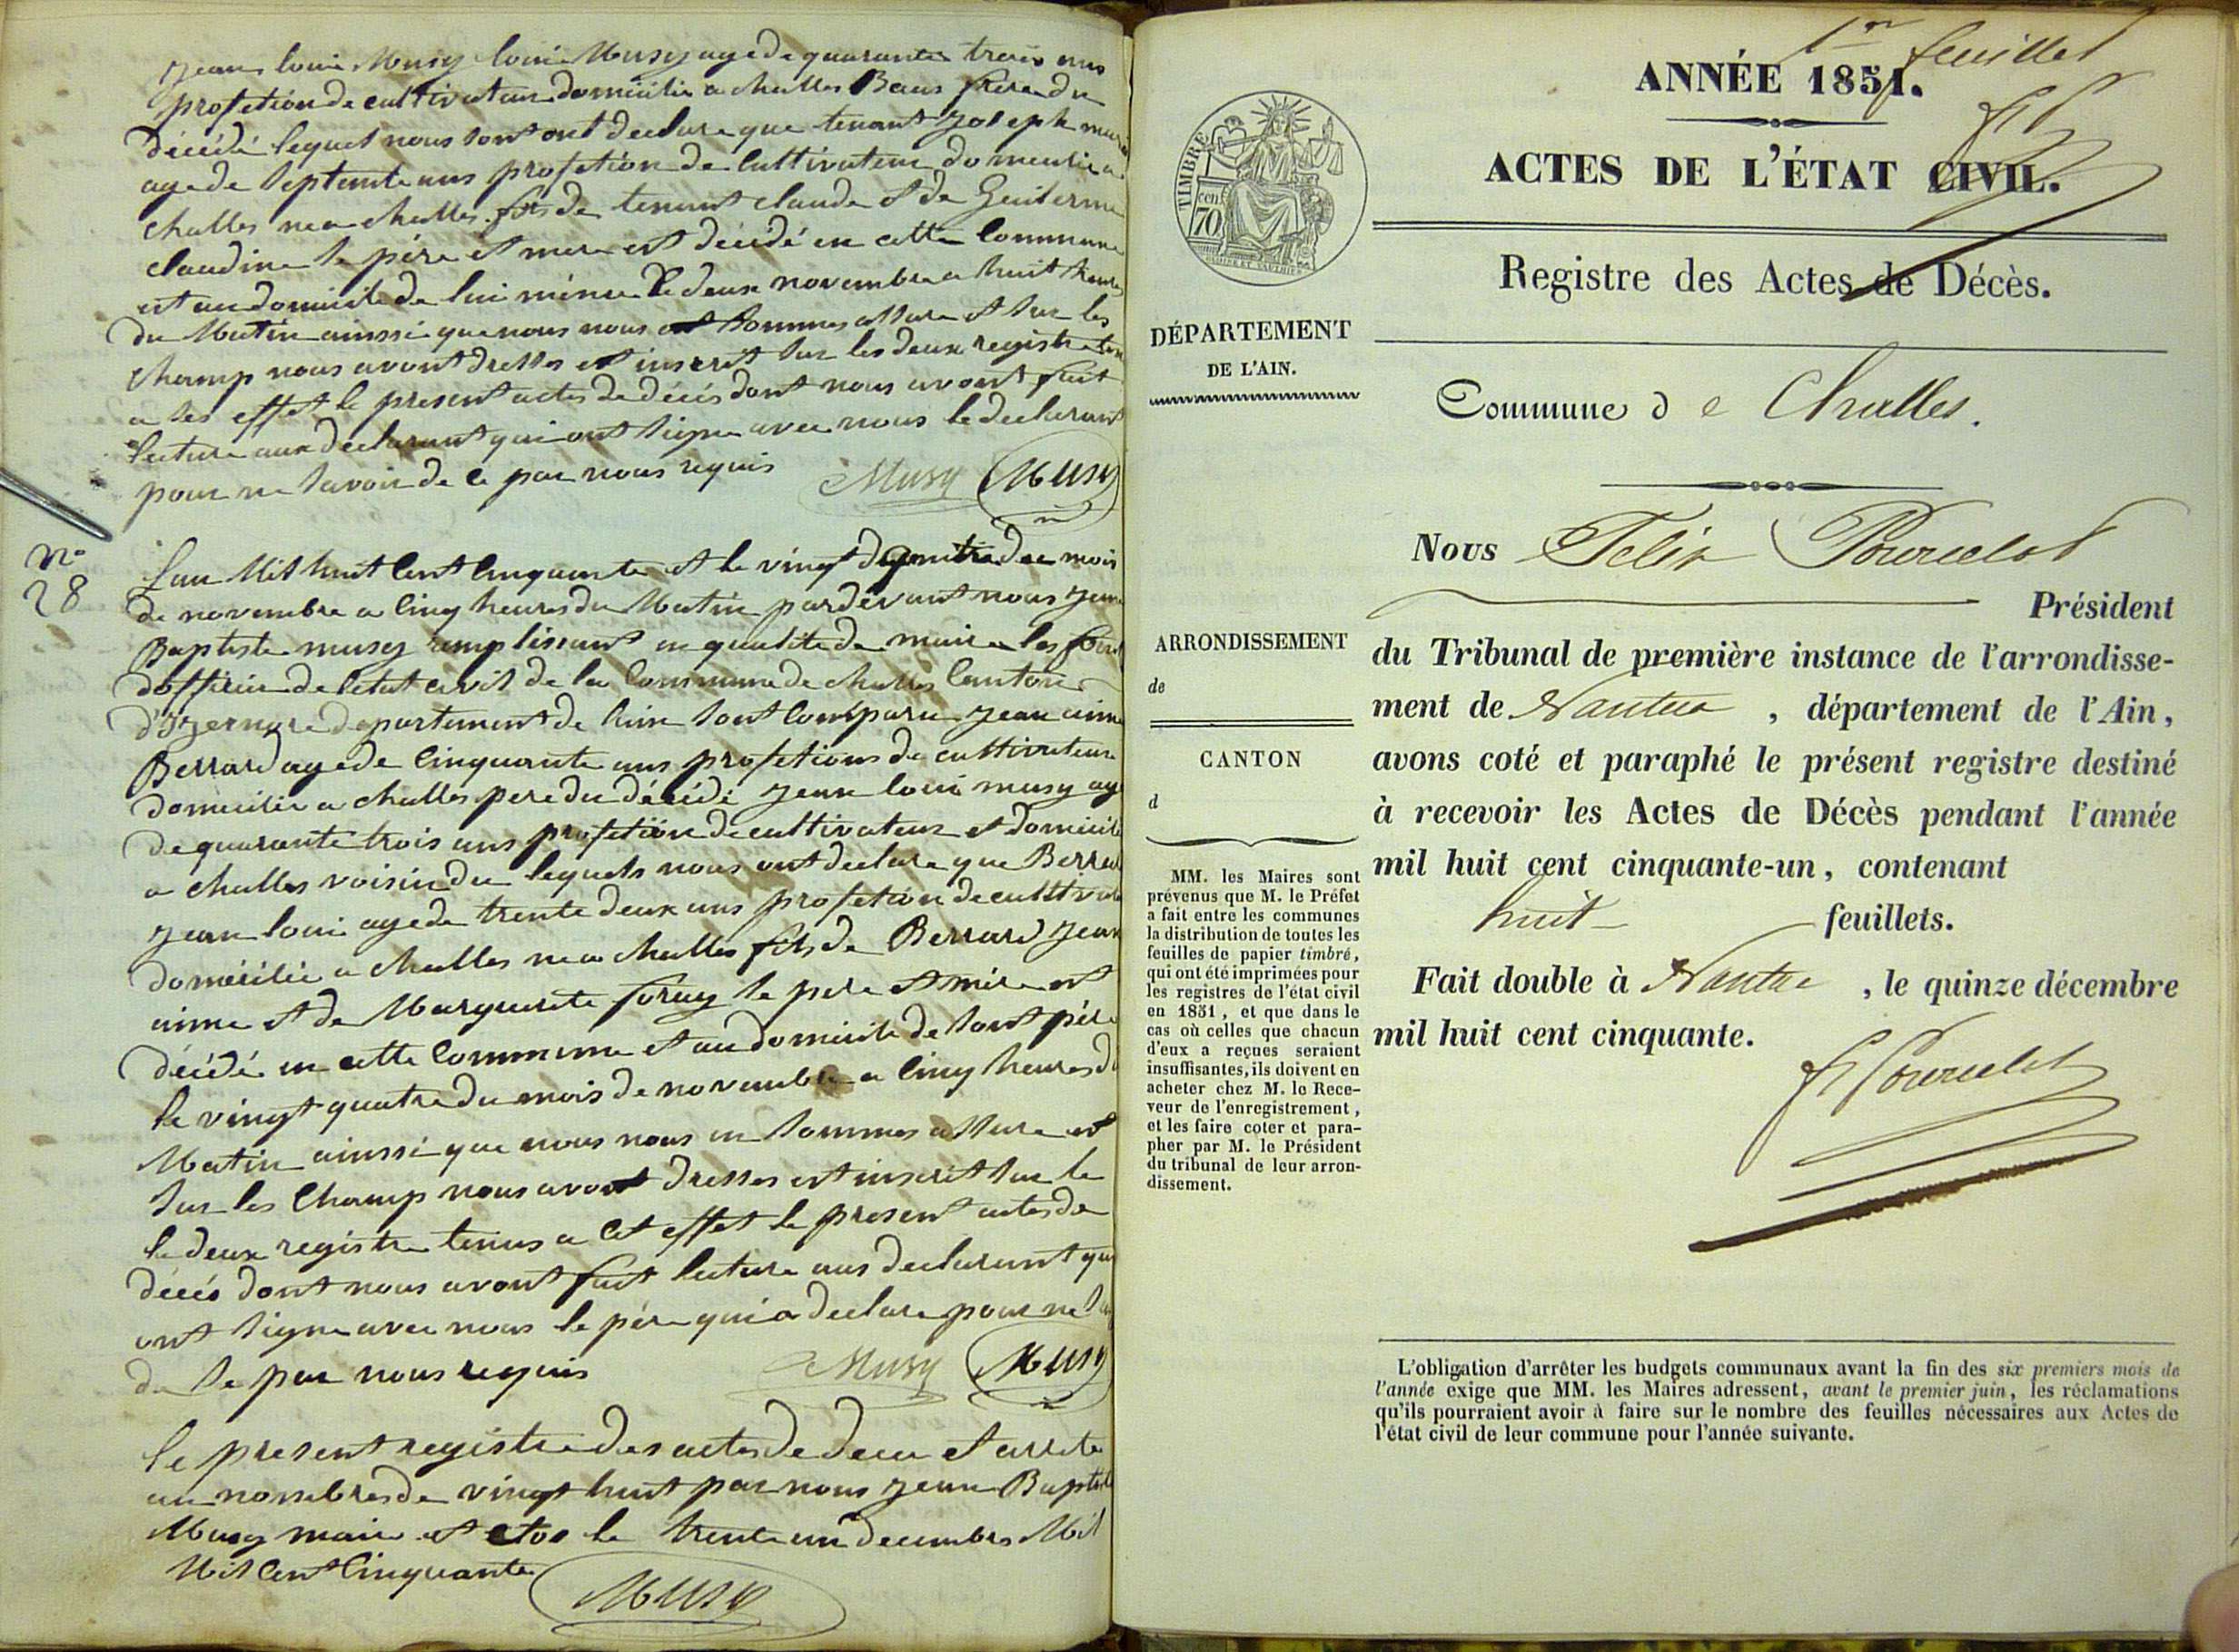 Jean loui Musy loui Musy age de quarante trois ans
profetion de cultivateur domicilie a challes Baus frere du
décédé lequel nous sont ont declare que tenant Joseph marie
age de septante ans profetion de cultivateur domicilie a
challes ne a challes fils de tenant claude et de Guilerme
claudine le père et mere est décédé en cette Commune
est au domicile de lui même le deux novembre a huit heures
du Matin ainssi que nous nous sommes assure et sur les
champ nous avont dresses est inscrit sur les deux registre
a ses effet le present actes de décés dont nous avont fait
lecture aux declarant qui ont signe avec nous le declarant
pour ne savoir de ce par nous requis Musy Musy
n° 28
Lan Mil huit Cent Cinquante et le vingt quatre du mois
de novembre a Cinq heures du Matin pardevant nous Jean
Baptiste musy remplissant en qualite de maire les fonct
dofficier de letat civil de la Commune de challes Canton
d'Izernore departement de lain sont Comparu Jean aime
Berrard age de Cinquante ans profetions de cultivateur
domicilie a challes pere du décédé Jean loui musy age
de quarante trois ans profetion de cultivateur et domicilie
a challes voisin du lequels nous ont declare que Berrard
Jean loui age de trente deux ans profetion de cultivate
domicilie a challes ne a challes fils de Berrard Jean
aime et de Marguerite foray le pere et mère est
décédé en cette Commune et au domicile de sont père
le vingt quatre du mois de novembre a Cinq heures du
Matin ainssi que nous nous en sommes assure est
sur les Champ nous avont dresses est inscrit sur le
le deux registre tenus a cet effet le present actes de
décés dont nous avont fait lecture aus declarant qui
ont signe avec nous le père qui a declare pour ne
de se par nous requis Musy Musy
le present registre des actes de deces et arrete
au nombres de vingt huit par nous Jean Baptiste
Musy maire et clos le trente un decembres Mil
Mil Cent Cinquante Musy
1er feuillet
ANNÉE 1851.
ACTES DE L'ÉTAT CIVIL.
TIMBRE
cen.
70
Registre des Actes de Décès.
DÉPARTEMENT
DE L'AIN.
Commune d e Challes.
Nous Felix Pourcelot
Président
ARRONDISSEMENT
de
CANTON
d
du Tribunal de première instance de l'arrondisse-
ment de Nantua , département de l'Ain,
avons coté et paraphé le présent registre destiné
à recevoir les Actes de Décès pendant l'année
mil huit cent cinquante-un, contenant
huit feuillets.
Fait double à Nantua , le quinze décembre
mil huit cent cinquante.
F Pourcelot
MM. les Maires sont
prévenus que M. le Préfet
a fait entre les communes
la distribution de toutes les
feuilles de papier timbré,
qui ont été imprimées pour
les registres de l'état civil
en 1851, et que dans le
cas où celles que chacun
d'eux a reçues seraient
insuffisantes, ils doivent en
acheter chez M. le Rece-
veur de l'enregistrement,
et les faire coter et para-
pher par M. le Président
du tribunal de leur arron-
dissement.
L'obligation d'arrêter les budgets communaux avant la fin des six premiers mois de
l'année exige que MM. les Maires adressent, avant le premier juin, les réclamations
qu'ils pourraient avoir à faire sur le nombre des feuilles nécessaires aux Actes de
l'état civil de leur commune pour l'année suivante.